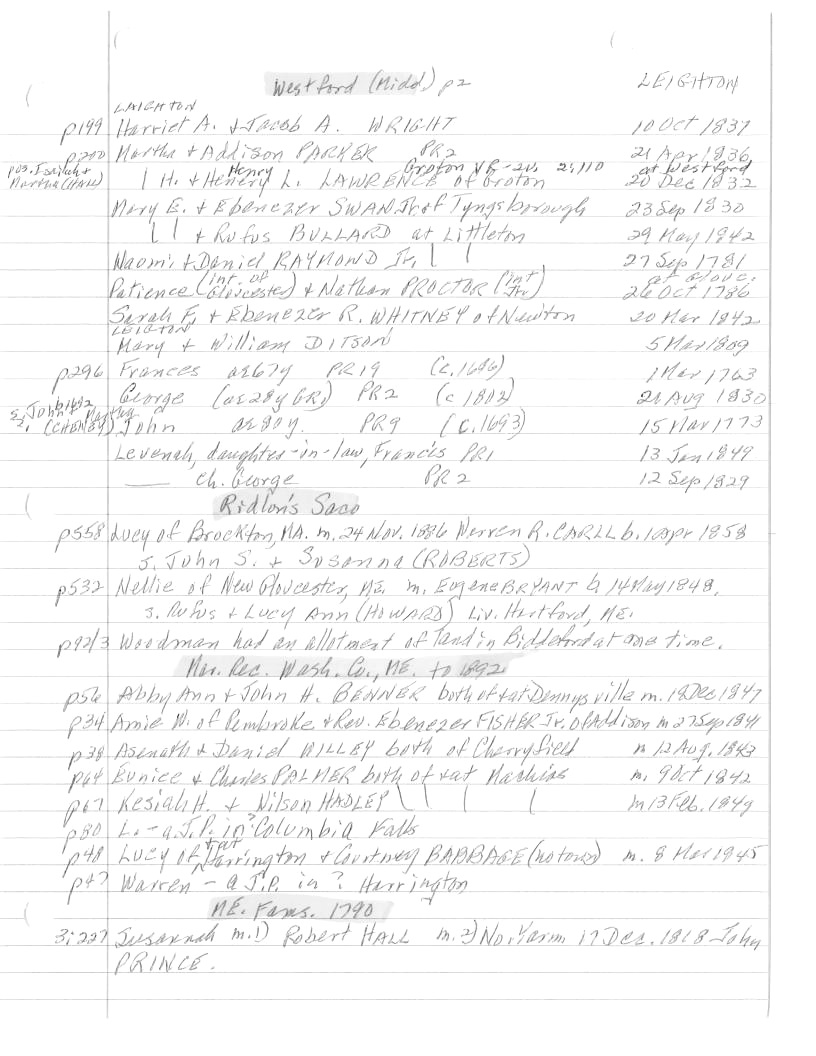 Westford (Midd) p2 LEIGHTON
LAIGHTON
p199 Harriet A. + Jacob A. WRIGHT 10 Oct 1837
p200 Martha + Addison PARKER PR2 21 Apr 1836
pos. Isaiah + Martha (HALL) Henry Groton VR-2V. 2:110 at Westford
| H. + Henery L. LAWRENCE of Groton 20 Dec 1832
Mary E. + Ebenezer SWAN Jr. of Tyngsborough 23 Sep 1830
| | + Rufus BULLARD at Littleton 29 May 1842
Naomi + Daniel RAYMOND Jr. | | 27 Sep 1781
Patience (int. of Gloucester) + Nathan PROCTOR (int Jr) at Glouc. 26 Oct 1786
Sarah F. + Ebenezer R. WHITNEY of Newton 20 Mar 1842
LEIGTON
Mary + William DITSON 5 Mar 1809
p296 Frances ae 67y PR19 (c.1696) 1 Mar 1763
George (ae 28y GR1) PR2 (c 1802) 21 Aug 1830
s. John + Martha (CHENEY) John ae 80y. PR9 (c.1693) 15 Mar 1773
Levenah, daughter-in-law, Francis PR1 13 Jan 1849
___ ch. George PR2 12 Sep 1829
Ridlon's Saco
p558 Lucy of Brockton, MA. m. 24 Nov. 1886 Warren R. CARLL b. 1 Apr 1858
s. John S. + Susanna (ROBERTS)
p532 Nellie of New Gloucester, ME. m. Eugene BRYANT b 14 May 1848,
s. Rufus + Lucy Ann (HOWARD) Liv. Hartford, ME.
p92/3 Woodman had an allotment of land in Biddeford at one time.
Mar. Rec. Wash. Co., ME. to 1892
p56 Abby Ann + John H. BENNER both of + at Dennysville m. 18 Dec 1847
p34 Amie W. of Pembroke + Rev. Ebenezer FISHER Jr. of Addison m 27 Sep 1841
p38 Asenath + Daniel WILLEY both of Cherryfield m 12 Aug. 1843
p64 Eunice + Charles PALMER both of + at Machias m. 9 Oct 1842
p67 Kesiah H. + Wilson HADLEY | | | | m 13 Feb. 1849
p80 L. - a J.P. in ? Columbia Falls
p48 Lucy of + at Harrington + Courtney BABBAGE (no town) m. 8 Mar 1845
p47 Warren - a J.P. in ? Harrington
ME. Fams. 1790
3:227 Susannah m.1) Robert HALL m. 2) No. Yarm 17 Dec. 1818 John
PRINCE.